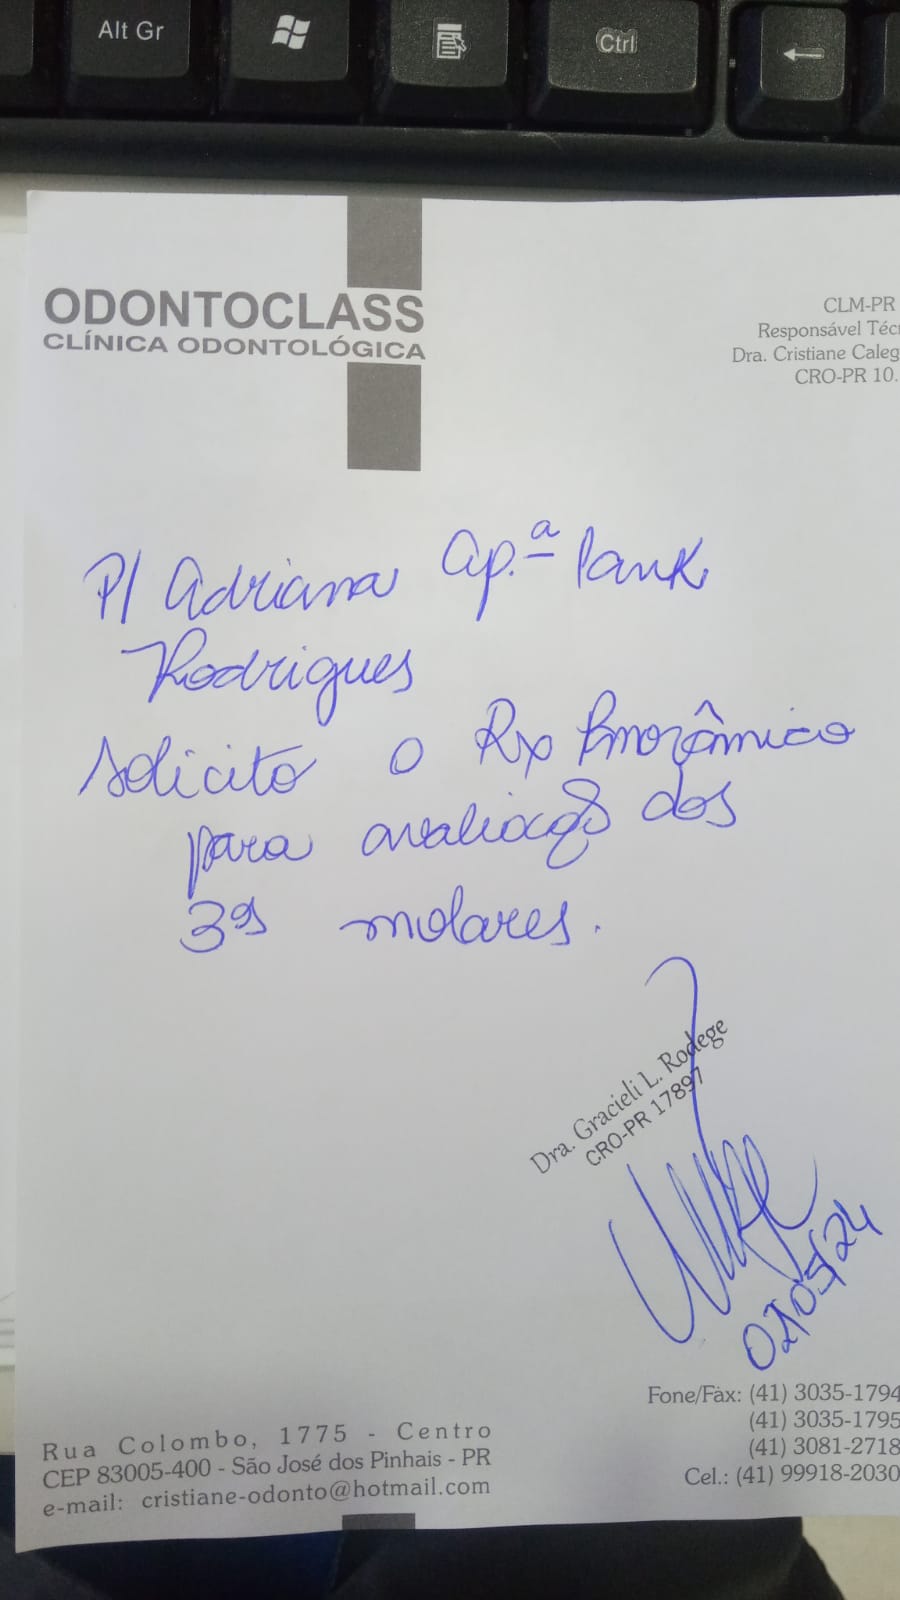 Alt Gr
Ctrl
ODONTOCLASS
CLÍNICA ODONTOLÓGICA
CLM-PR
Responsável Téc
Dra. Cristiane Caleg
CRO-PR 10.
P/ Adriana Ap.ª Pank
Rodrigues
Solicito o Rx Panorâmico
para avaliação dos
3ºs molares.
Dra. Gracieli L. Rodege
CRO-PR 17897
/05/24
Fone/Fax: (41) 3035-1794
(41) 3035-1795
(41) 3081-2718
Cel.: (41) 99918-2030
Rua Colombo, 1775 - Centro
CEP 83005-400 - São José dos Pinhais - PR
e-mail: cristiane-odonto@hotmail.com